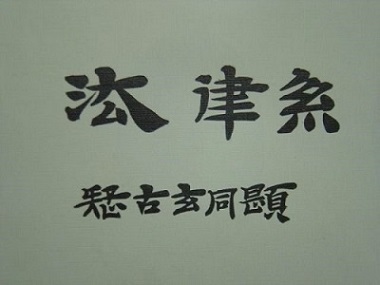 法律系
疑古玄同題